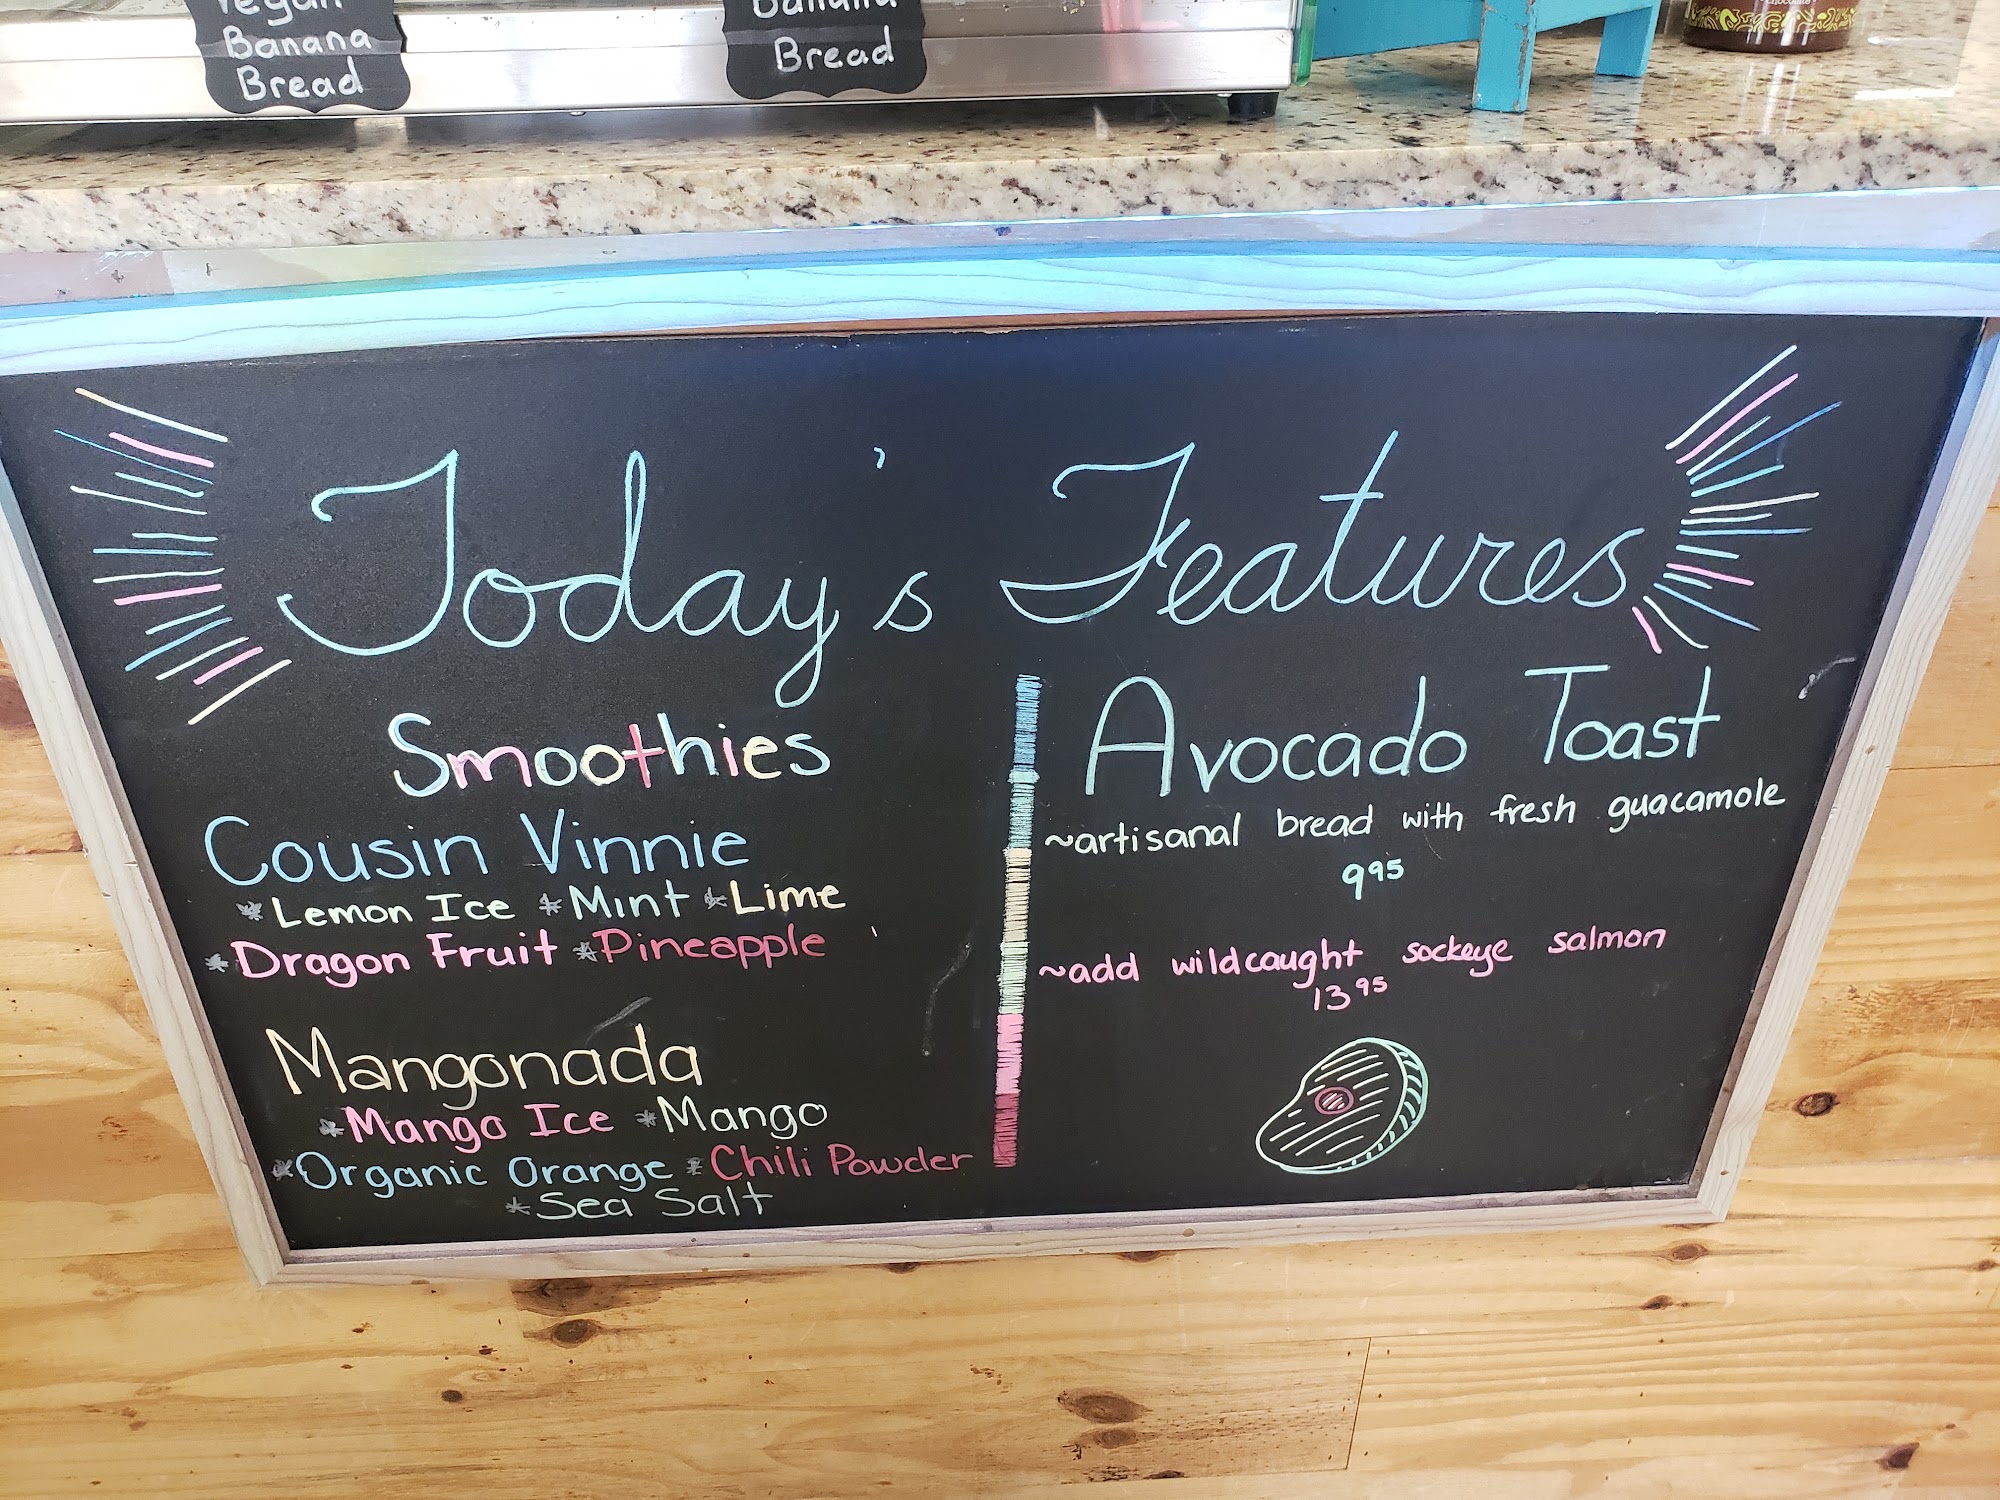 Vegan
Banana
Bread
Banana
Bread
chocolate
Today's Features
Smoothies
Cousin Vinnie
*Lemon Ice *Mint *Lime
*Dragon Fruit *Pineapple
Mangonada
*Mango Ice *Mango
*Organic Orange *Chili Powder
*Sea Salt
Avocado Toast
~artisanal bread with fresh guacamole
9.95
~add wildcaught sockeye salmon
13.95